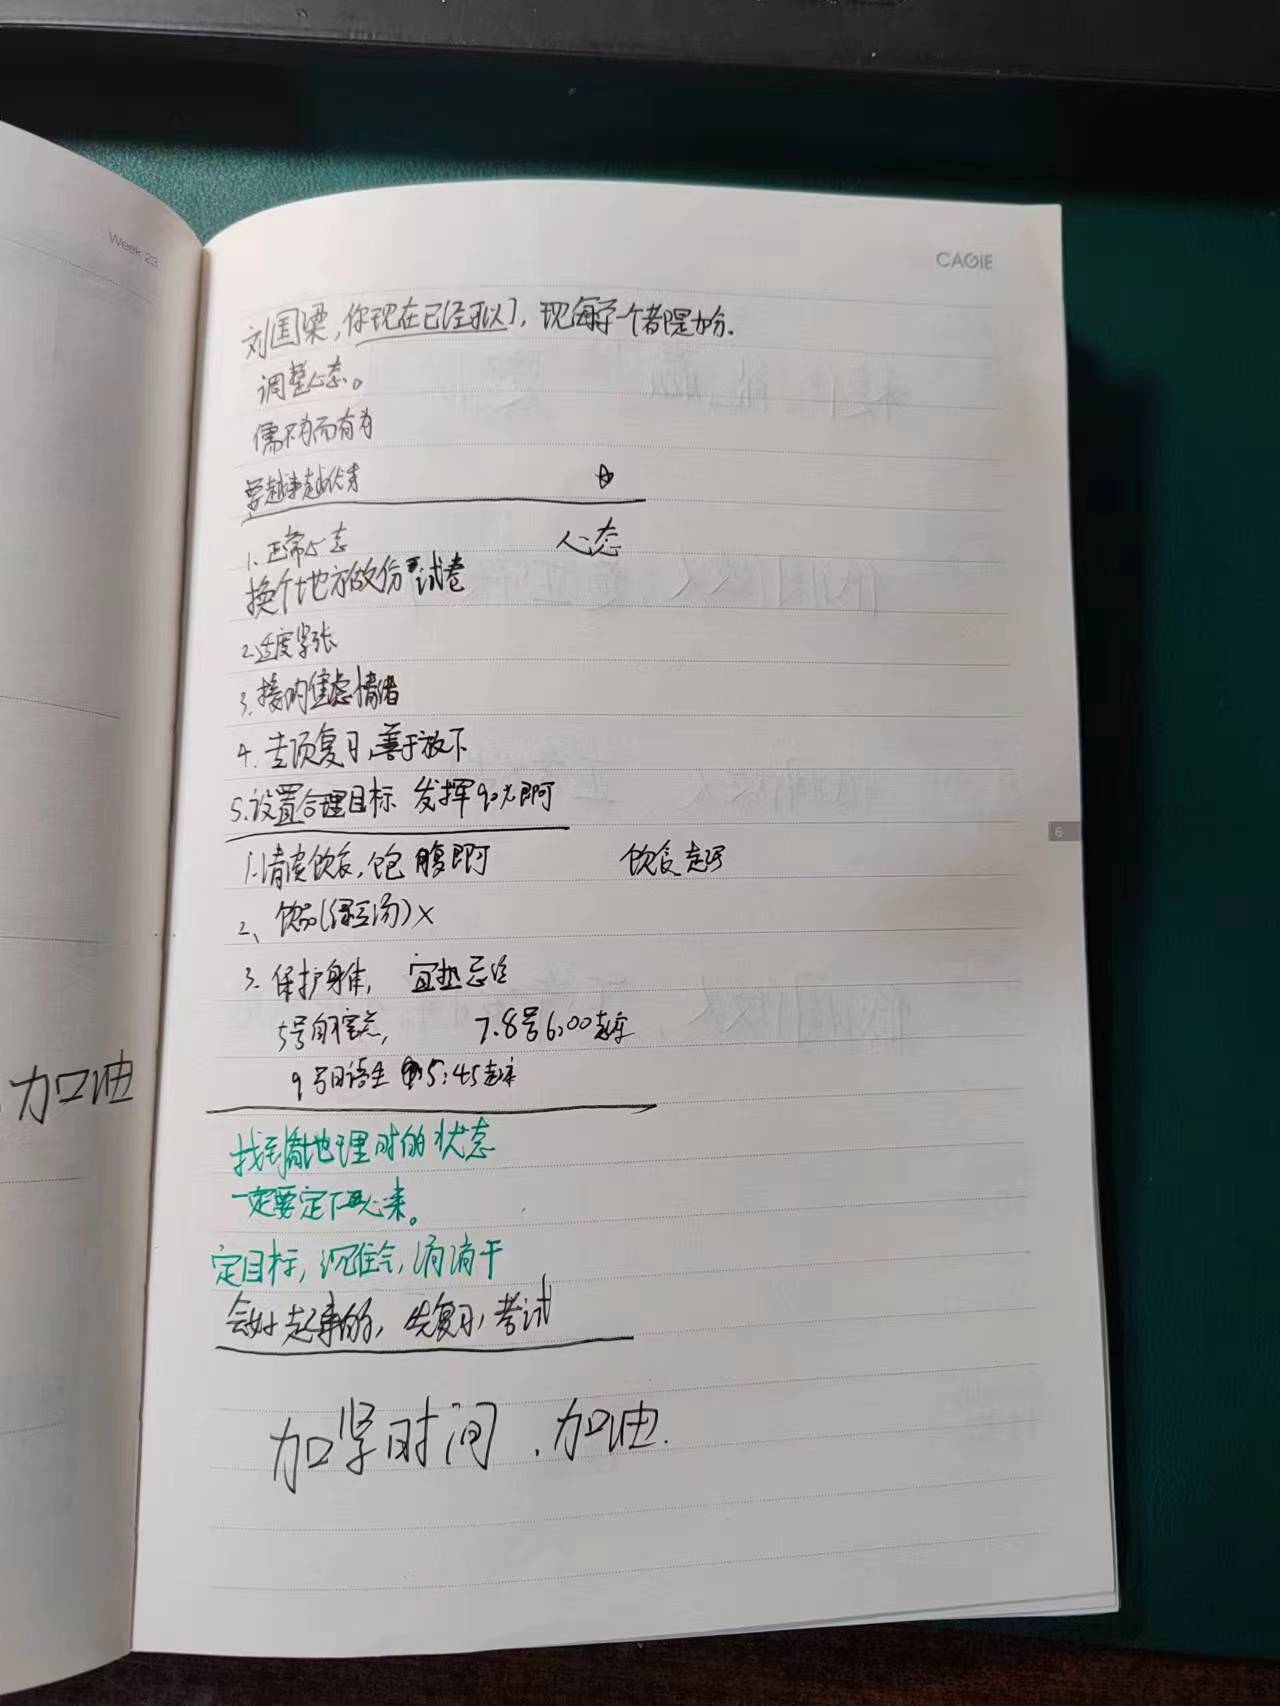 Week 23
CAGIE
刘国梁，你现在已经可以了，现每学一个都是加分.
调整心态。
儒不为而有为
要越来越优秀
1.正常心态
心态
换个地方做份试卷
2.适度紧张
3.接纳焦虑情绪
4.专项复习,善于放下
5.设置合理目标 发挥90%即可
6
1.清淡饮食,饱腹即可
饮食起居
2、饮品(绿豆汤)×
3.保护身体, 宜热忌冷
5号自习, 7.8号6:00起床
9号日语生 5:45起床
加油
找到搞地理时的状态
一定要定下心来。
定目标,沉住气,悄悄干
会好起来的,先复习,考试
加紧时间.加油.